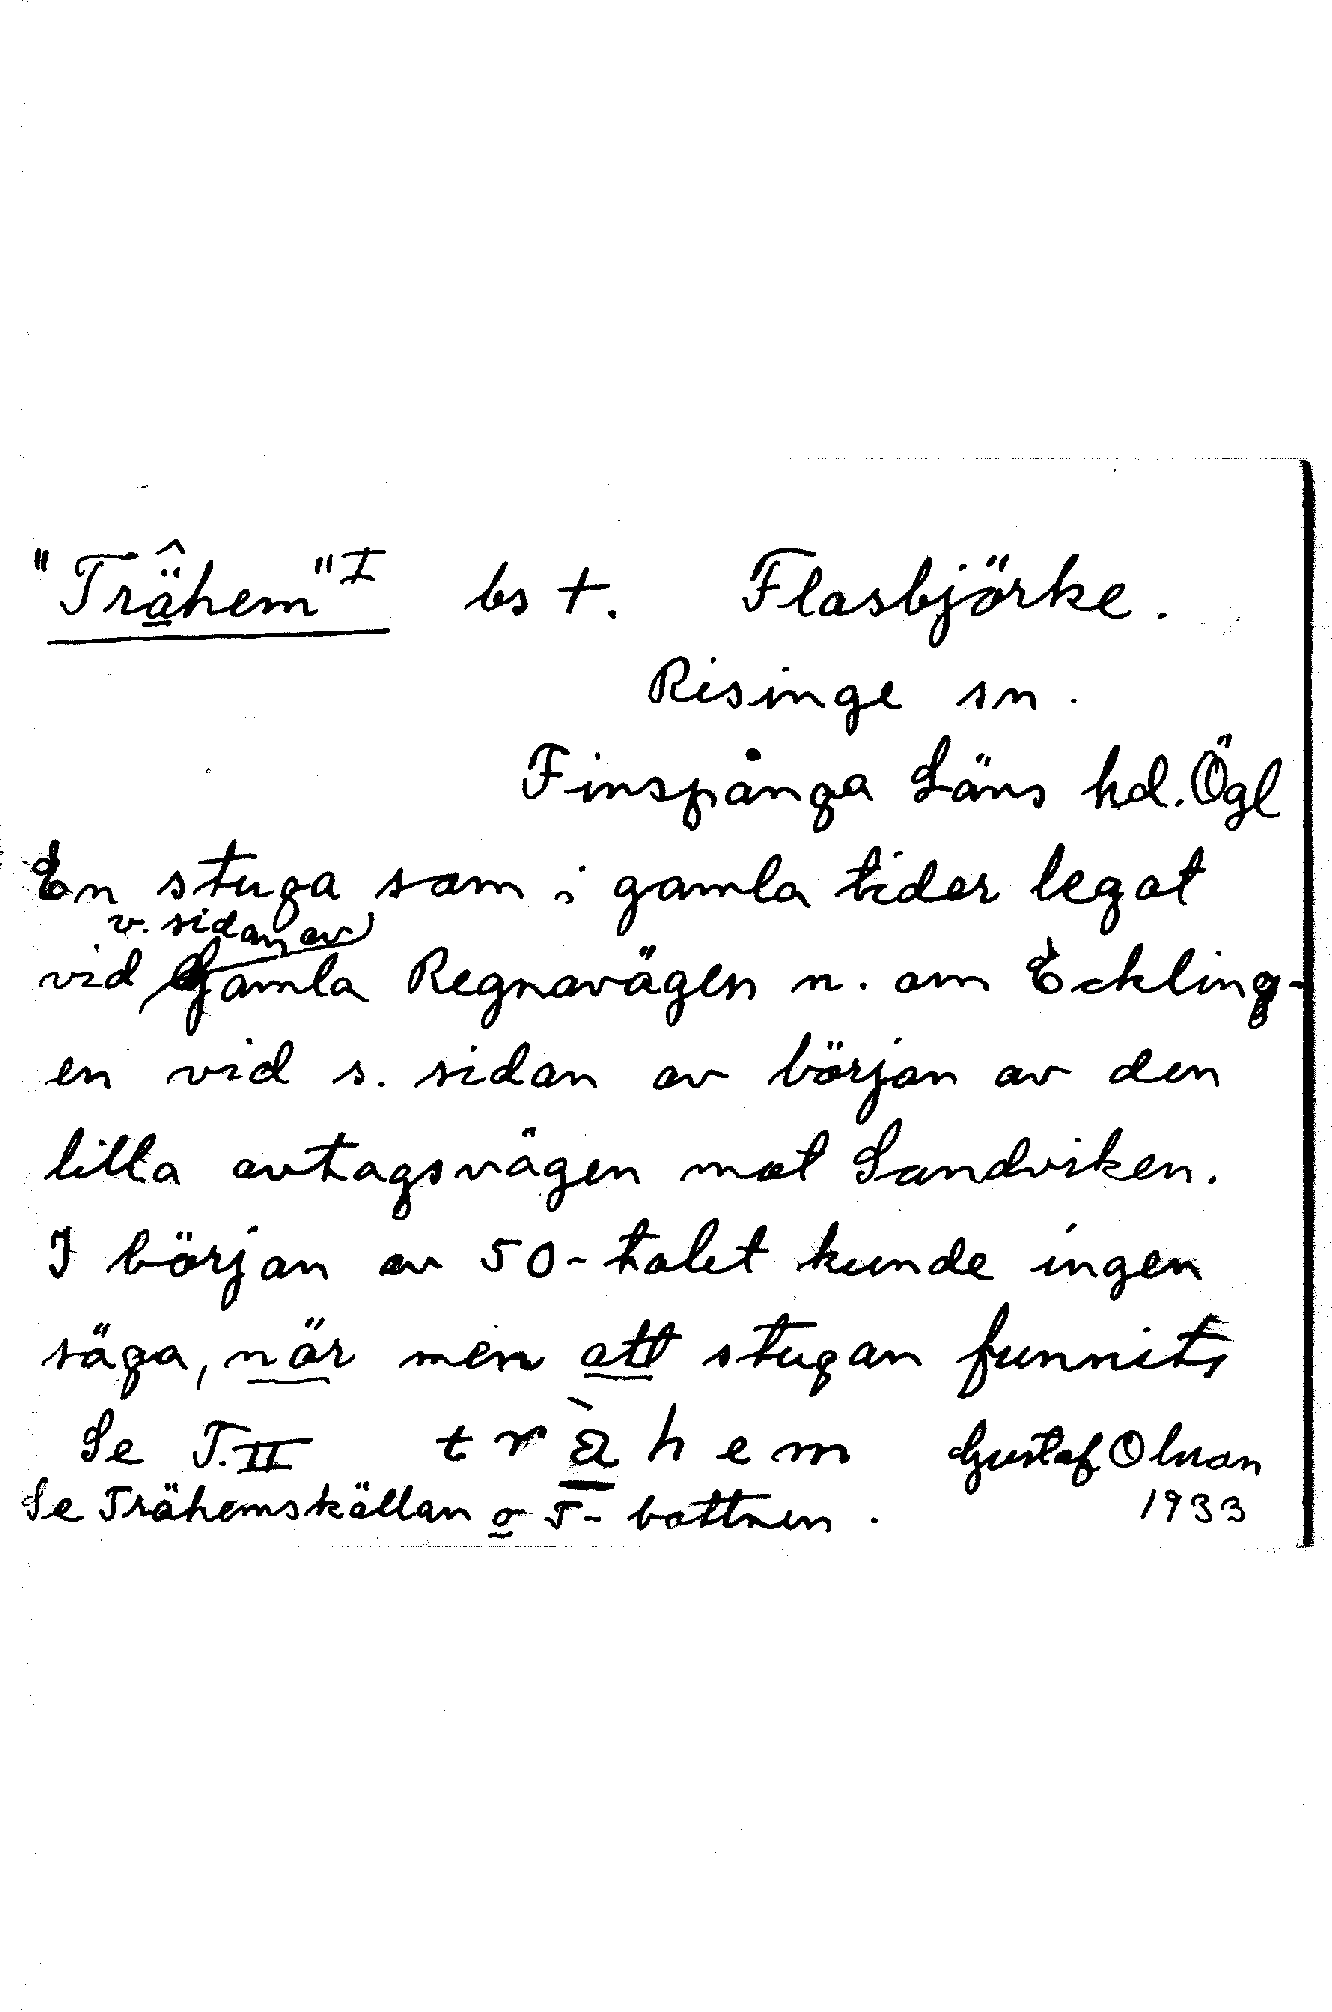 "Trähem" I bs †. Flasbjörke.
Risinge sn.
Finspånga Läns hd. Ögl
En stuga som i gamla tider legat
v. sidan av
vid Gamla Regnavägen n. om Eckling-
en vid s. sidan av början av den
lilla avtagsvägen mot Sandviken.
I början av 50-talet kunde ingen
säga, när men att stugan funnits
Se T. II trä̀hem Gustaf Olsson
Se Trähemskällan o T- bottnen. 1933